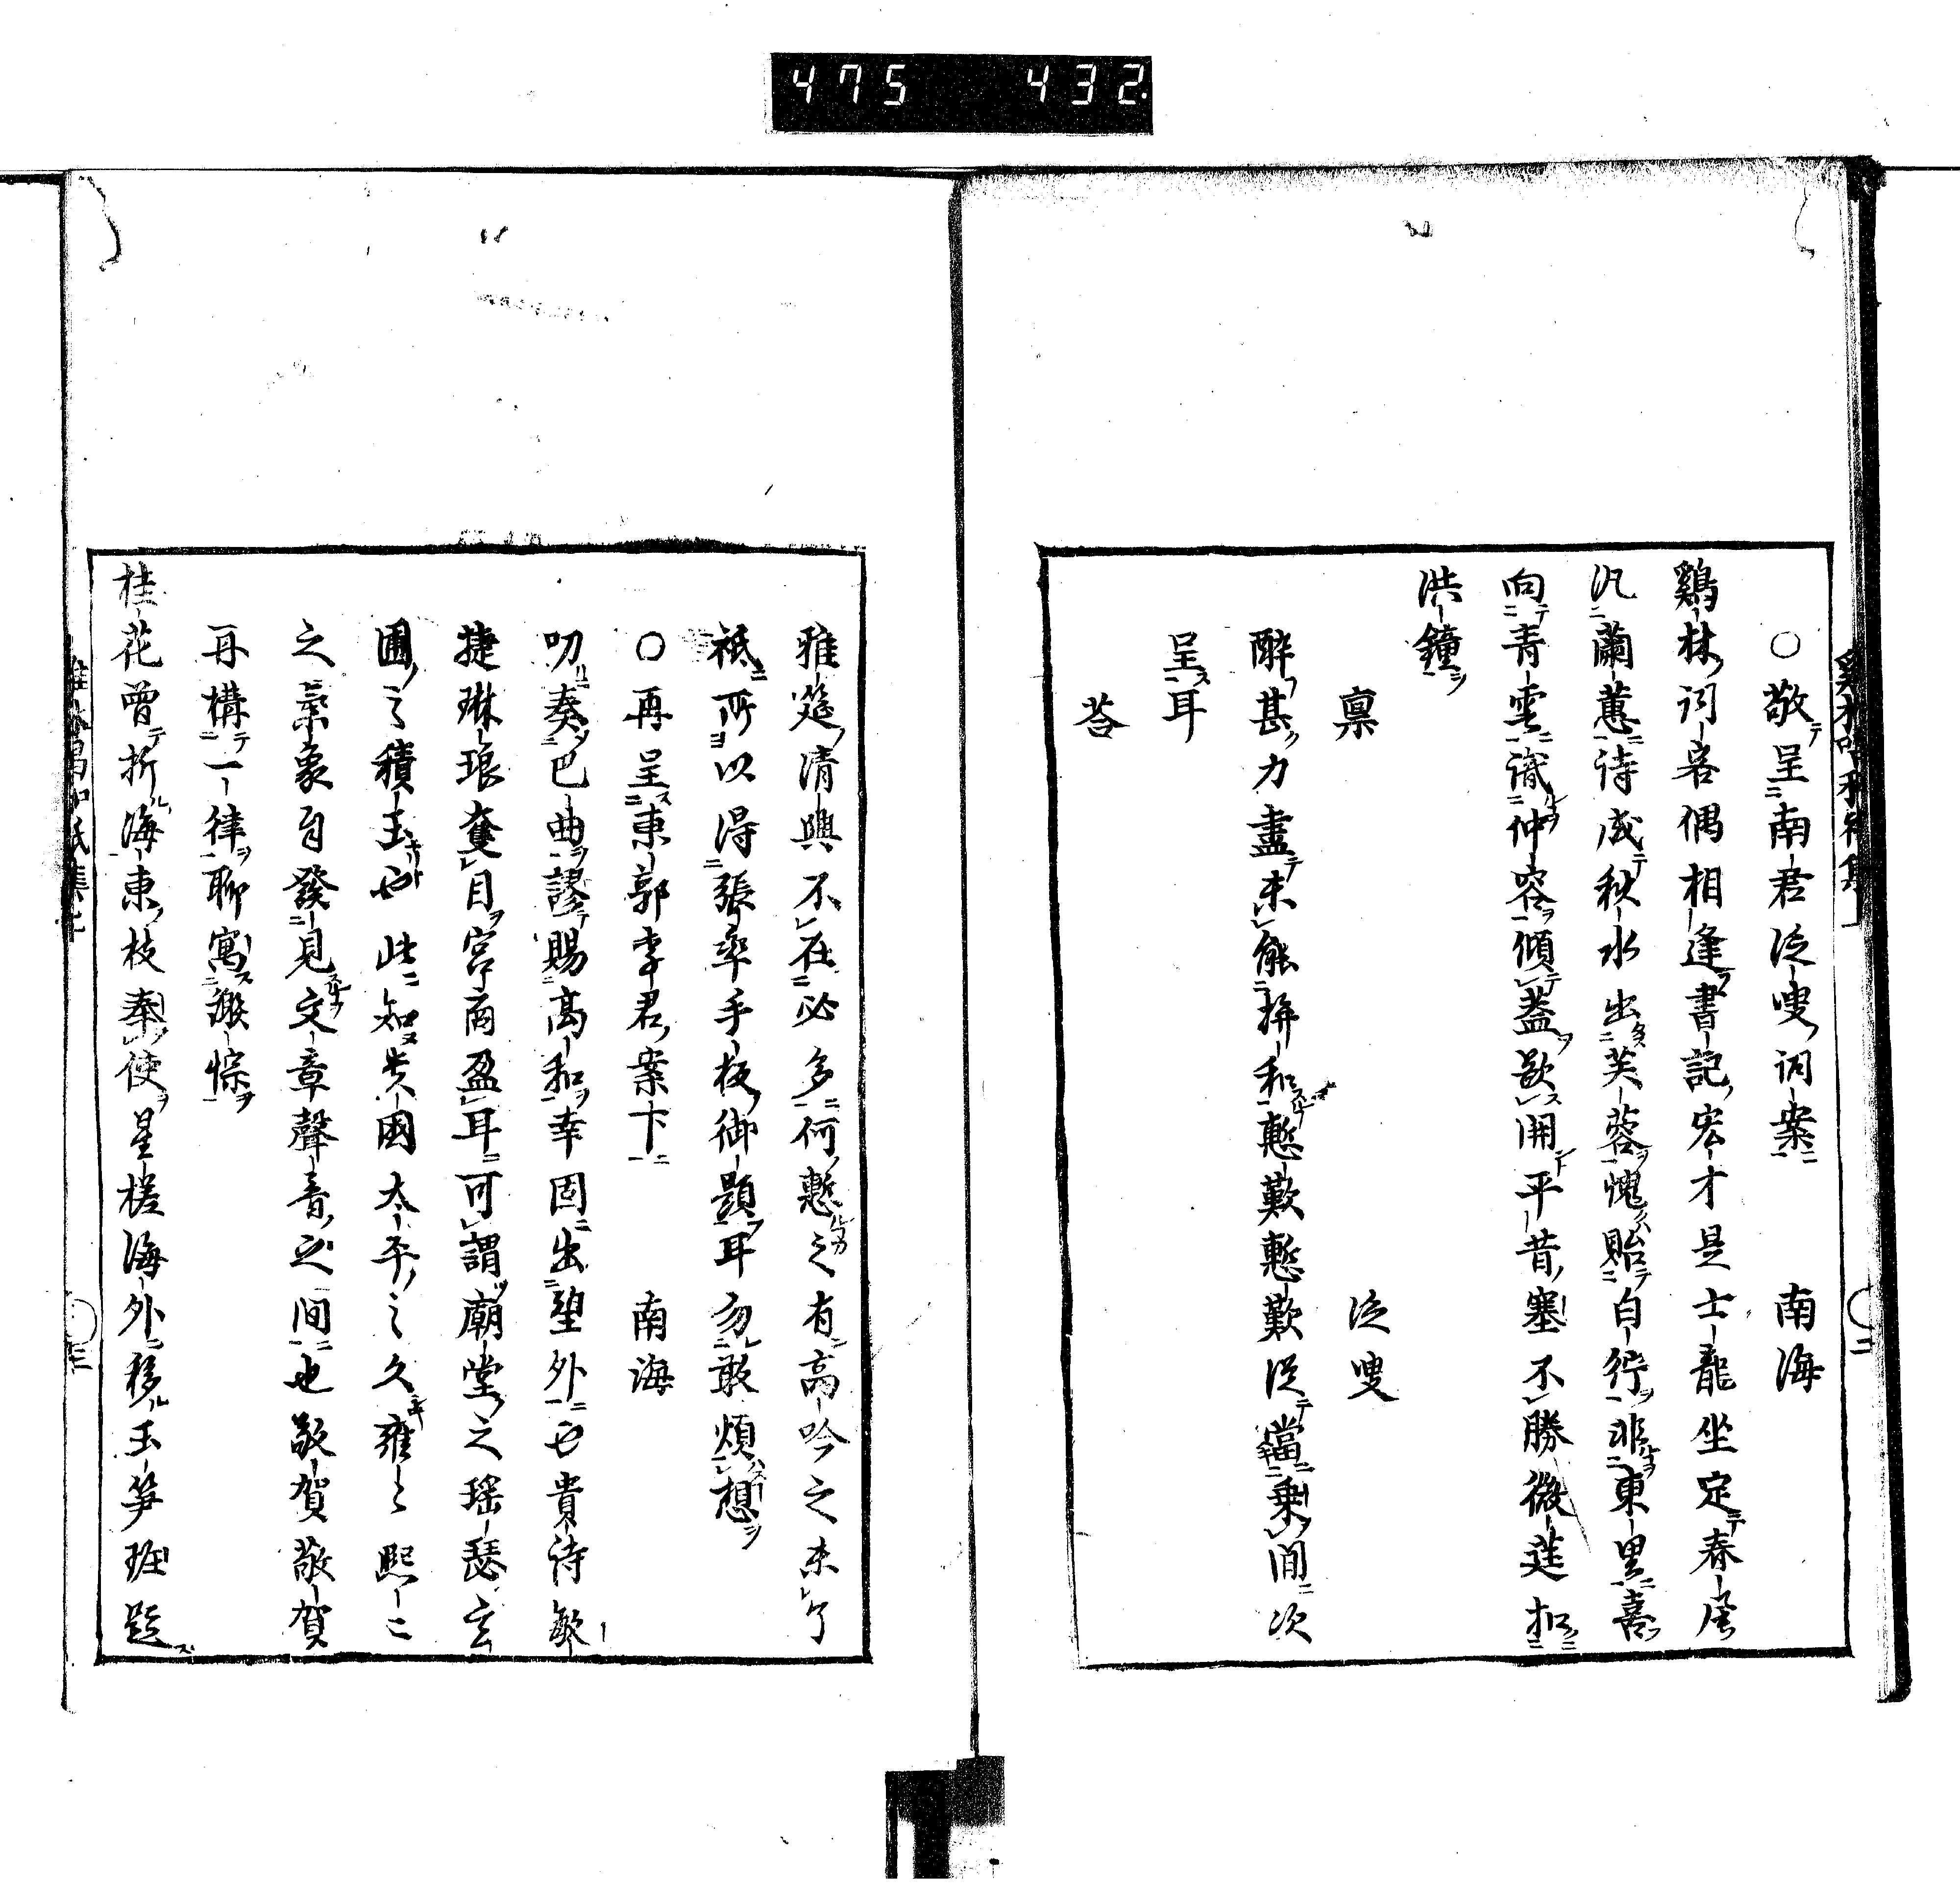 475 432
○敬呈南君泛叟詞案 南海
鷄林詞客偶相逢書記宏才是士龍坐定春風
汎蘭蕙詩成秋水出芙蓉愧貽白紵非東里喜
向青雲識仲容傾蓋歆開平昔塞不勝微莛扣
洪鐘
稟 泛叟
醉甚力盡未能拚和慙歎慙歎從當乗間次
呈耳
荅
雅筵清興不在必多何慙之有高吟之未了
祗所以得張率手板御題耳勿敢煩想
○再呈東郭李君案下 南海
叨奏巴曲謬賜高和幸固出望外也貴詩敏
捷琳琅奪目宮商盈耳可謂廟堂之瑶瑟玄
圃之積玉也此知貴國太平之久雍〻熙〻
之氣象自發見文章聲音之间也敬賀敬賀
再構一律聊寓微悰
桂花曾折海東枝奉使星槎海外移玉笋班題